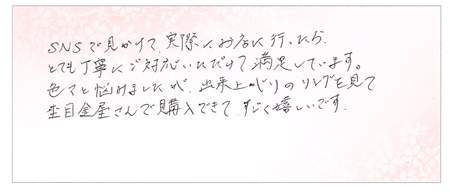 SNSで見かけて、実際にお店に行ったら、
とても丁寧にご対応いただけて満足しています。
色々と悩みましたが、出来上がりのリングを見て
杢目金屋さんで購入できて、すごく嬉しいです。